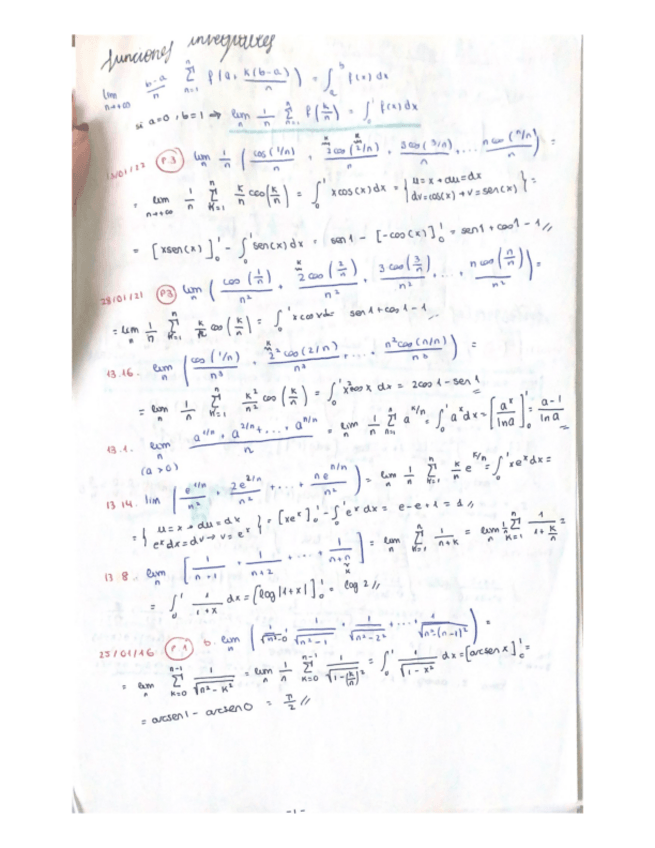 funciones integrables
lim n→+∞ b-a/n Σ n=1 n f(a+ k(b-a)/n) = ∫ a b f(x) dx
si a=0, b=1 ⇒ lim n 1/n Σ n=1 n f(k/n) = ∫ 0 1 f(x) dx
P.3 lim n 1/n ( cos(1/n)/n + 2cos(2/n)/n + 3cos(3/n)/n + ... n cos(n/n)/n ) =
= lim n→+∞ 1/n Σ k=1 n k/n cos(k/n) = ∫ 0 1 x cos(x) dx = { u=x → du=dx dv=cos(x) → v=sen(x) } =
= [xsen(x)] 0 1 - ∫ 0 1 sen(x) dx = sen1 - [-cos(x)] 0 1 = sen1 + cos1 - 1 //
28/01/21 P3 lim n ( cos(1/n)/n² + 2cos(2/n)/n² + 3cos(3/n)/n² + ... + n cos(n/n)/n² ) =
= lim n 1/n Σ k=1 n k/n cos(k/n) = ∫ 0 1 x cos x dx = sen1 + cos1 - 1
13.16. lim n ( cos(1/n)/n³ + 2² cos(2/n)/n³ + ... + n² cos(n/n)/n³ ) =
= lim n 1/n Σ k=1 n k²/n² cos(k/n) = ∫ 0 1 x² cos x dx = 2cos1 - sen1
13.1. lim n a^1/n + a^2/n + ... + a^n/n / n = lim n 1/n Σ n=1 n a^k/n = ∫ 0 1 a^x dx = [a^x/lna] 0 1 = a-1/lna
(a>0)
13.14. lim n ( e^1/n/n² + 2e^2/n/n² + ... + n e^n/n/n² ) = lim n 1/n Σ k=1 n k/n e^k/n = ∫ 0 1 x e^x dx =
= { u=x → du=dx e^x dx=dv → v=e^x } = [xe^x] 0 1 - ∫ 0 1 e^x dx = e-e+1 = 1 //
13.8. lim n [ 1/n+1 + 1/n+2 + ... + 1/n+n ] = lim n Σ k=1 n 1/n+k = lim n 1/n Σ k=1 n 1/1+k/n =
= ∫ 0 1 1/1+x dx = [log|1+x|] 0 1 = log 2 //
25/01/16 P.1 b. lim n ( 1/√n²-0 + 1/√n²-1 + 1/√n²-2² + ... + 1/√n²-(n-1)² ) =
= lim n Σ k=0 n-1 1/√n²-k² = lim n 1/n Σ k=0 n-1 1/√1-(k/n)² = ∫ 0 1 1/√1-x² dx = [arcsen x] 0 1 =
= arcsen1 - arcsen0 = π/2 //
-1-